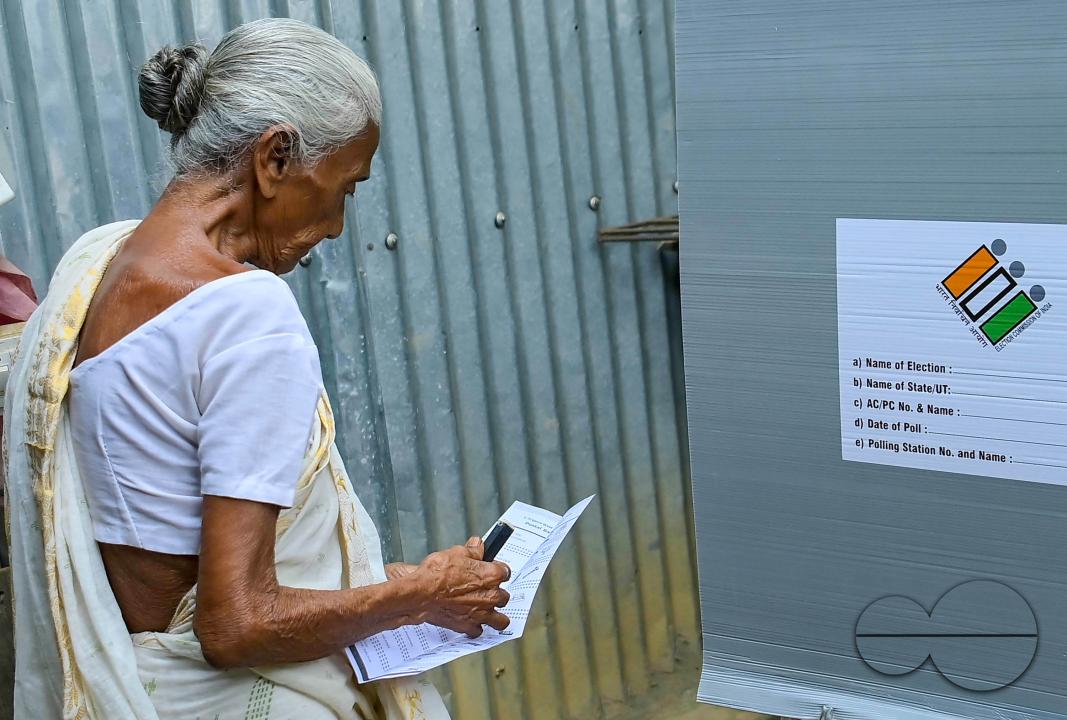 भारत निर्वाचन आयोग
ELECTION COMMISSION OF INDIA
a) Name of Election :
b) Name of State/UT:
c) AC/PC No. & Name :
d) Date of Poll :
e) Polling Station No. and Name :